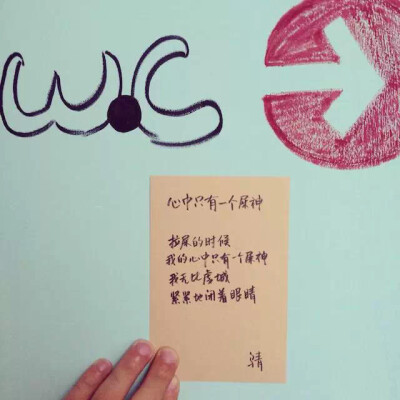 w.c
心中只有一个屎神
拉屎的时候
我的心中只有一个屎神
我无比虔诚
紧紧地闭着眼睛